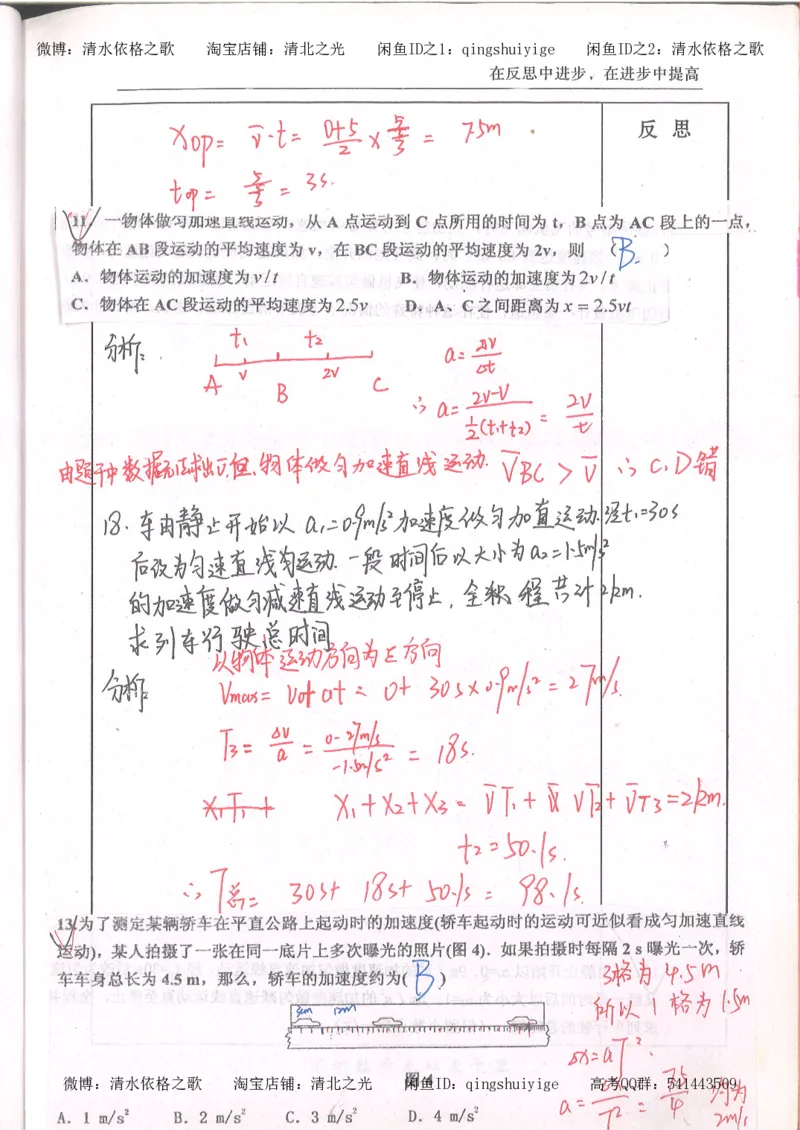 微博：清水依格之歌 淘宝店铺：清北之光 闲鱼ID之1：qingshuiyige 闲鱼ID之2：清水依格之歌
在反思中进步，在进步中提高
反 思
Xop= v̄·t= 0+5/2 × 5/5/3 = 7.5m
top= 5/5/3 = 3s.
11 一物体做匀加速直线运动，从 A 点运动到 C 点所用的时间为 t，B 点为 AC 段上的一点，
物体在 AB 段运动的平均速度为 v，在 BC 段运动的平均速度为 2v，则 （B.）
A．物体运动的加速度为 v/t B．物体运动的加速度为 2v/t
C．物体在 AC 段运动的平均速度为 2.5v D．A、C 之间距离为 x = 2.5vt
分析：
t₁ t₂
A v B 2v C
a= Δv/Δt
∴ a= 2v-v / ½(t₁+t₂) = 2v/t
由题干中数据无法求出v̄,但物体做匀加速直线运动. v̄BC > v̄ ∴ C,D错
18. 车由静止开始以 a₁=0.9m/s²加速度做匀加直运动.经t₁=30s
后改为匀速直线匀运动.一段时间后以大小为a₂=1.5m/s²
的加速度做匀减速直线运动至停止，全程共计2km.
求列车行驶总时间
以物体运动方向为正方向
分析：
Vmax= V0+at = 0+ 30s×0.9m/s² = 27m/s.
T3= Δv/a = 0-27m/s / -1.5m/s² = 18s.
X₁+X₂+X₃ = v̄T₁+ vT₂+ v̄T₃=2km.
t₂=50.1s.
∴ T总= 30s+ 18s+ 50.1s = 98.1s.
13.为了测定某辆轿车在平直公路上起动时的加速度(轿车起动时的运动可近似看成匀加速直线
运动)，某人拍摄了一张在同一底片上多次曝光的照片(图 4)．如果拍摄时每隔 2 s 曝光一次，轿
车车身总长为 4.5 m，那么，轿车的加速度约为( B )
3格为 4.5m
所以 1 格为 1.5m
Δx=aT².
微博：清水依格之歌 淘宝店铺：清北之光 闲鱼ID：qingshuiyige 高考QQ群：541443509
A．1 m/s² B．2 m/s² C．3 m/s² D．4 m/s²
约为
2m/s